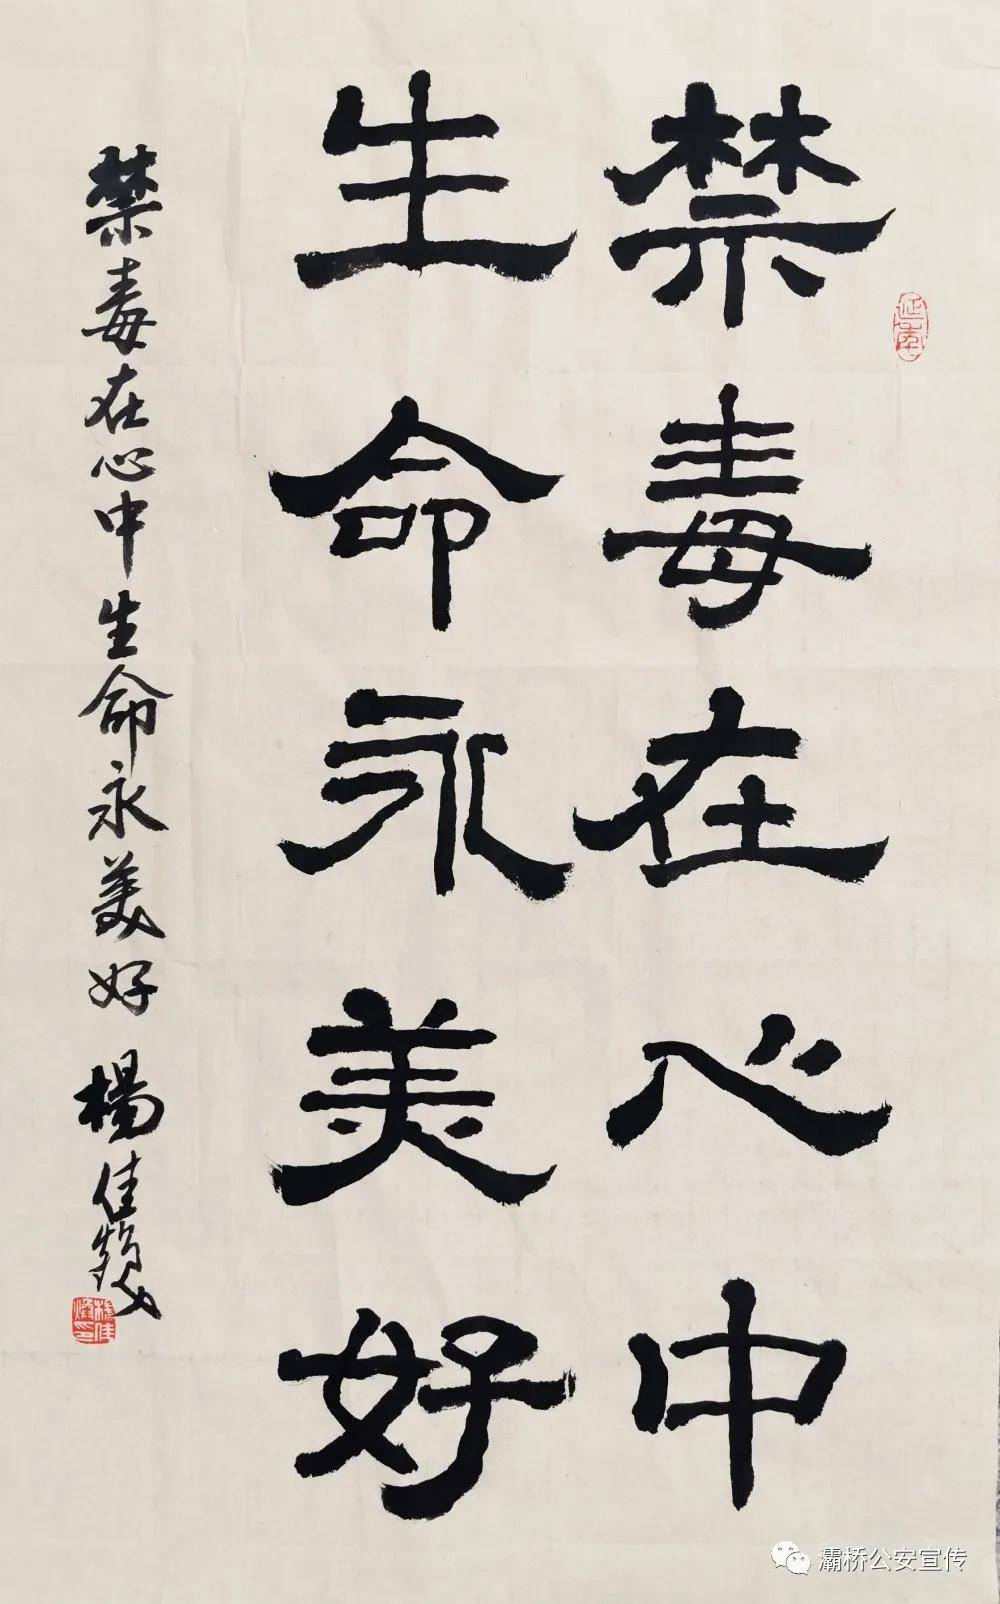 禁毒在心中
生命永美好
禁毒在心中生命永美好 楊佳
灞桥公安宣传